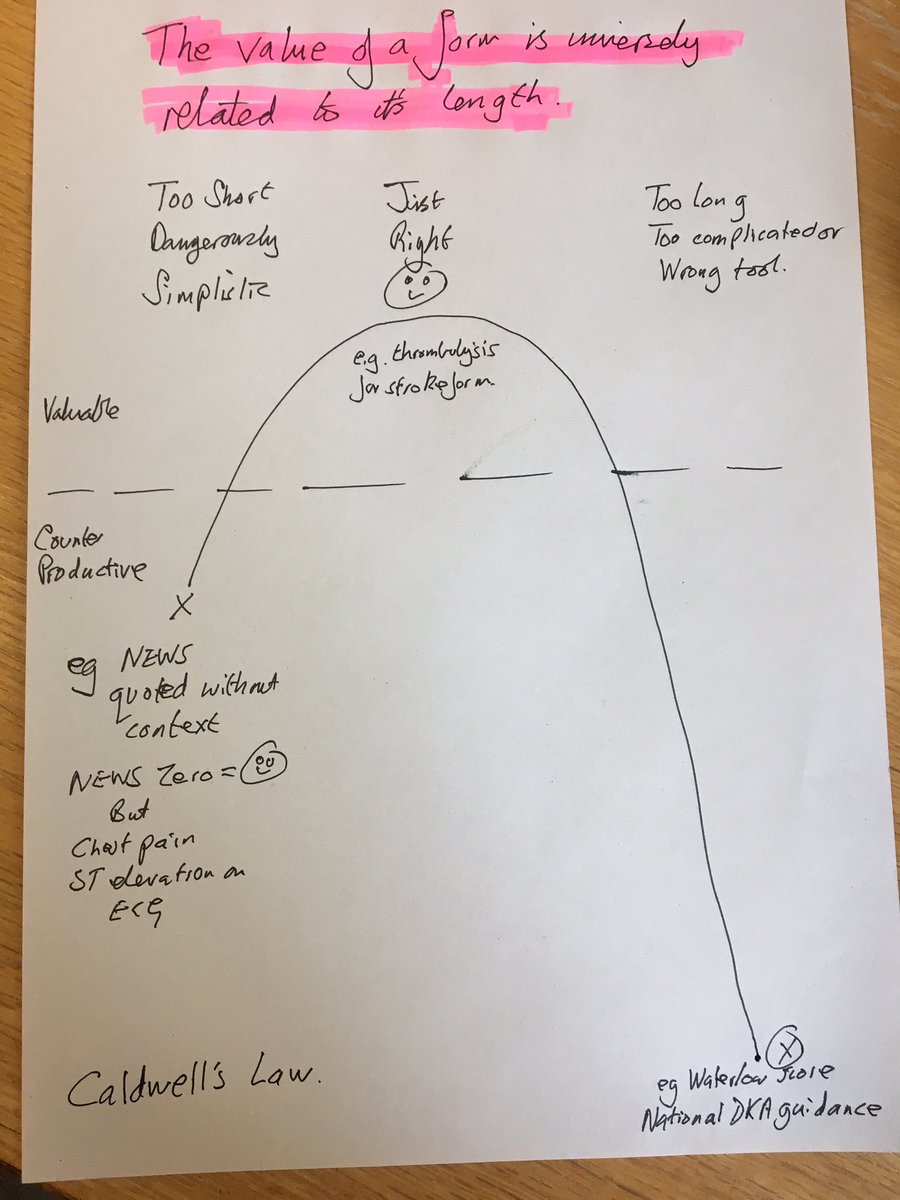 The value of a form is inversely
related to its length.
Too Short
Dangerously
Simplistic
Just
Right
Too long
Too complicated or
Wrong tool.
e.g. thrombolysis
for stroke form.
Valuable
Counter
Productive
X
eg NEWS
quoted without
context
NEWS Zero =
But
Chest pain
ST elevation on
ECG
Caldwell's Law.
X
eg Waterlow Score
National DKA guidance